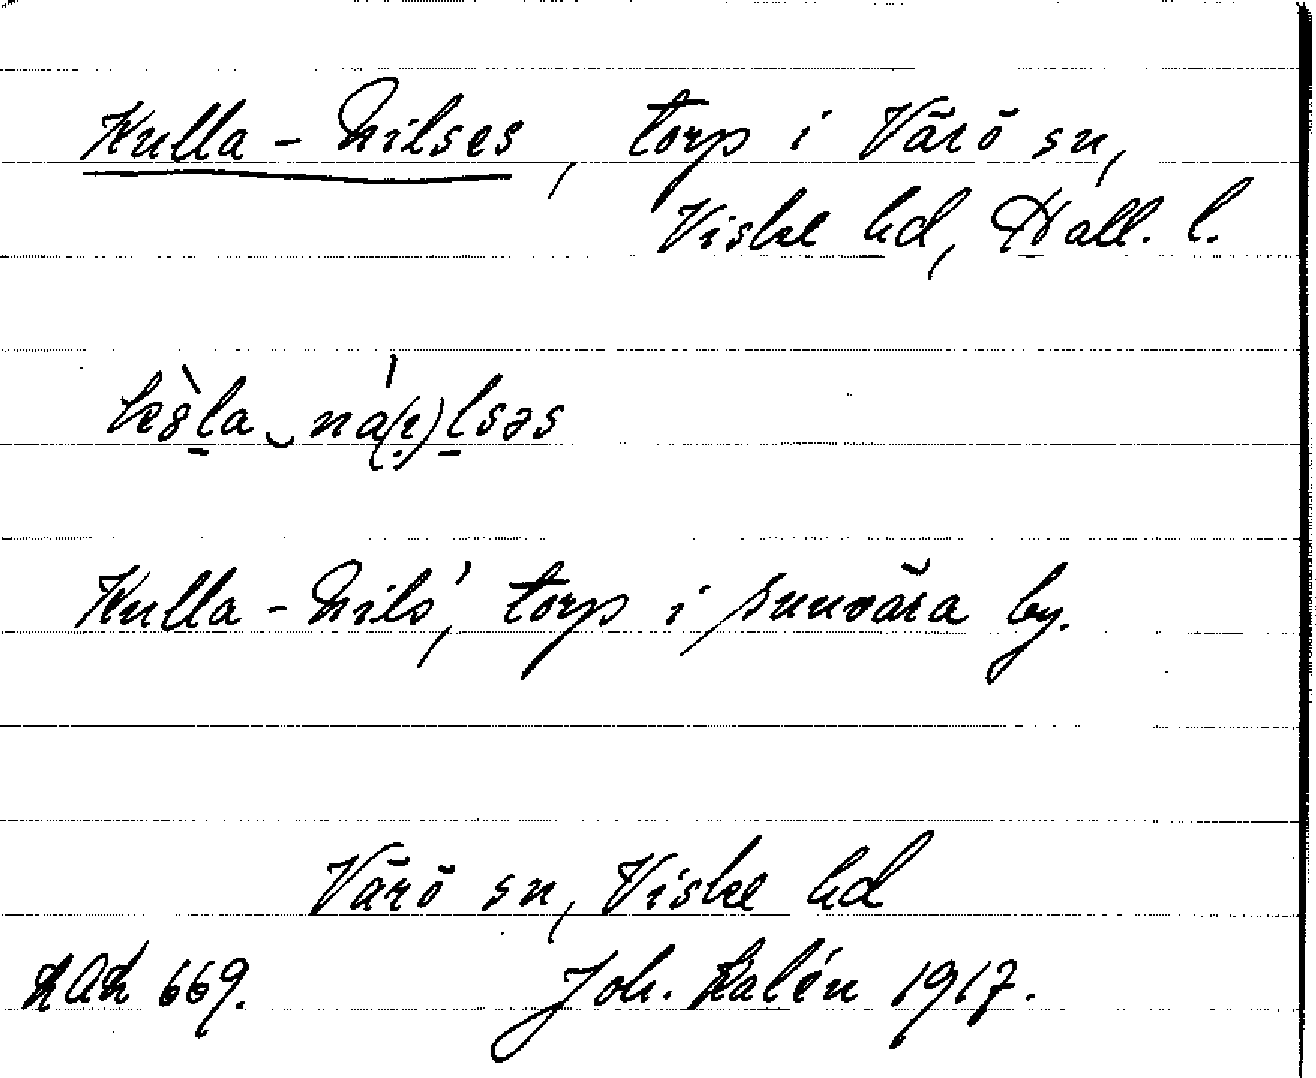 Kulla-Nilses, torp i Värö sn,
Viske hd, Hall. l.
Kulla-Nils', torp i Sunvära by.
Värö sn, Viske hd
669. Joh. Kalén 1917.